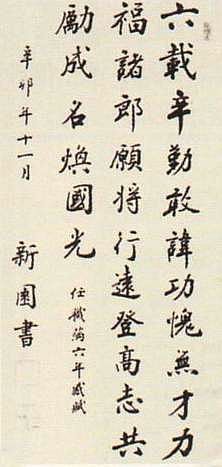 六載辛勤敢諱功愧無才力
福諸郎願將行遠登高志共
勵成名煥國光
任職滿六年感賦
辛卯年十一月
新園書